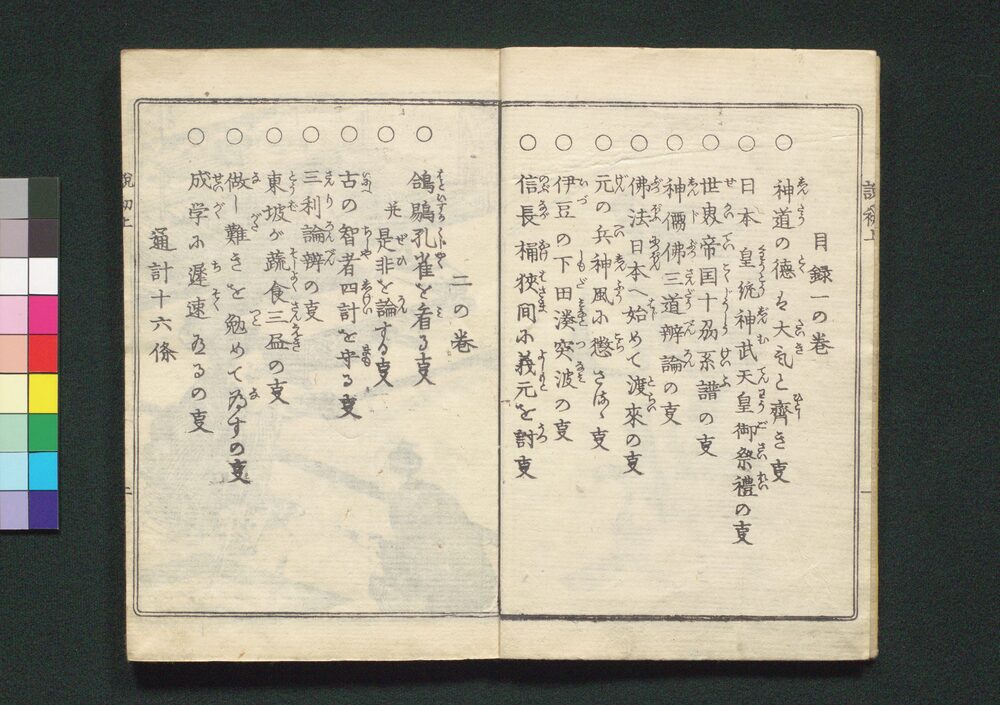 目録一の巻
○ 神道の徳は大気と齊き叓
○ 日本皇統神武天皇御祭禮の叓
○ 世界帝国十刕系譜の叓
○ 神儒佛三道辨論の叓
○ 佛法日本へ始めて渡來の叓
○ 元の兵神風に懲さるゝ叓
○ 伊豆の下田湊突波の叓
○ 信長桶狹間に義元を討叓
二の巻
○ 鴿鷃孔雀を看る叓
○ 并是非を論ずる叓
○ 古の智者四計を守る叓
○ 三利論辨の叓
○ 東坡が蔬食三益の叓
○ 做し難きを勉めて為すの叓
○ 成学に遲速あるの叓
通計十六條